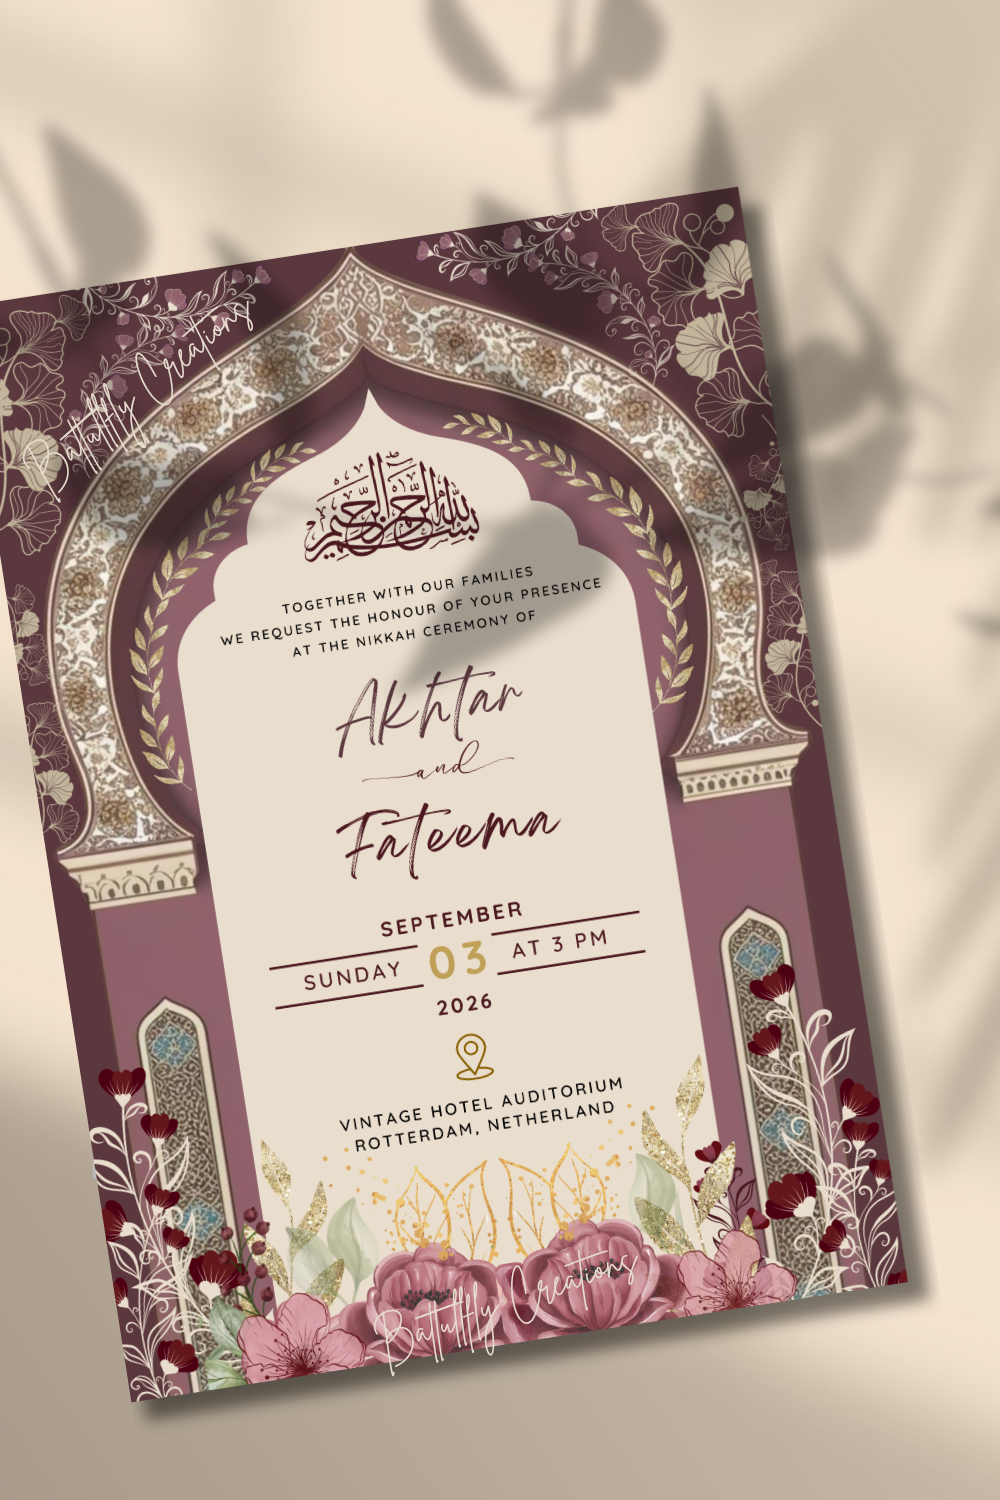 Battulfly Creations
بسم الله الرحمن الرحيم
TOGETHER WITH OUR FAMILIES
WE REQUEST THE HONOUR OF YOUR PRESENCE
AT THE NIKKAH CEREMONY OF
Akhtar
and
Fateema
SEPTEMBER
SUNDAY 03 AT 3 PM
2026
VINTAGE HOTEL AUDITORIUM
ROTTERDAM, NETHERLAND
Battulfly Creations